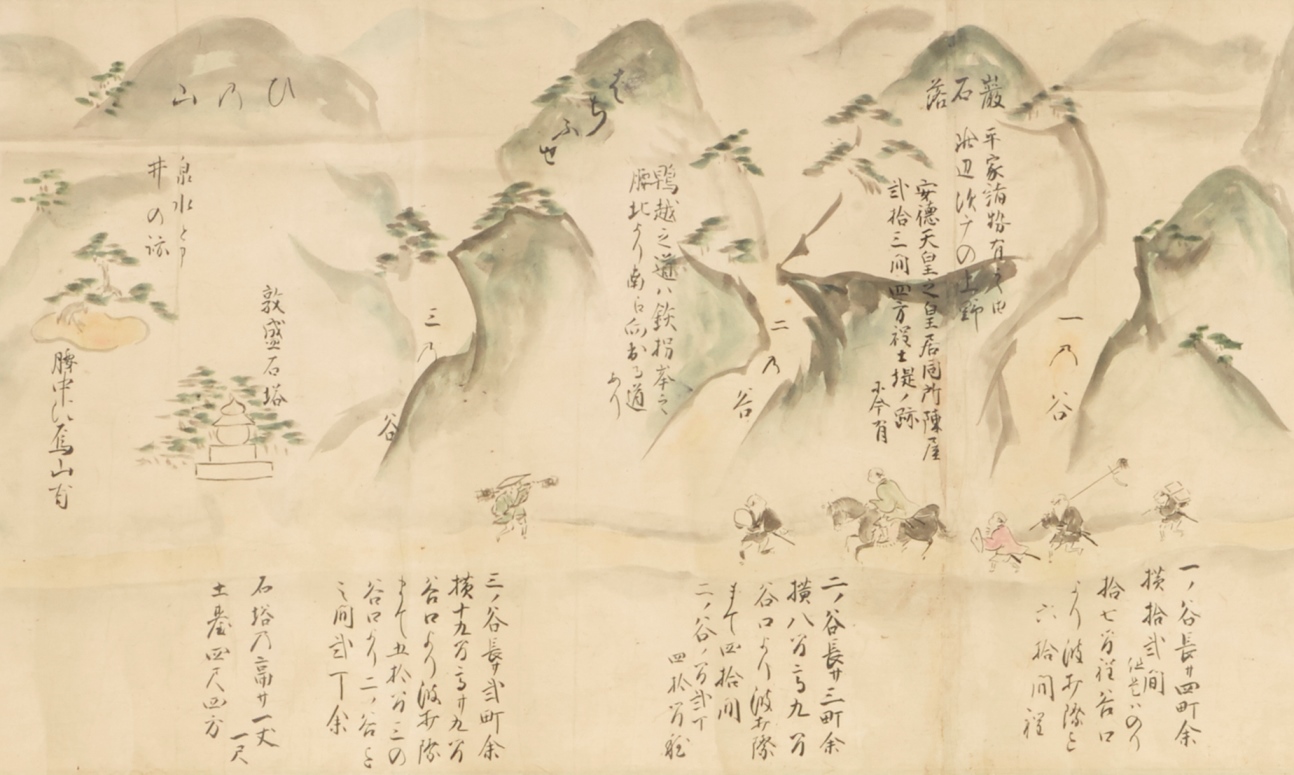 巌
石
落
平家諸勢有之由
此辺次ナの上野
安徳天皇之皇居同所陳屋
弐拾三間四方程土堤ノ跡
于今有
一乃谷
二乃谷
鵯越之道ハ鉄拐峯之
腰北より南に向おる道
あり
はちふせ
三乃谷
ひ乃山
泉水と
井の跡
敦盛石塔
一ノ谷長サ四町余
横拾弐間
拾七間程谷口
より波打際と
六拾間程
二ノ谷長サ三町余
横八間高九間
谷口より波打際
まて四拾間
二ノ谷ノ間弐丁
四拾間程
三ノ谷長サ弐町余
横十九間高サ九間
谷口より波打際
まて五拾間三の
谷口より二ノ谷と
之間弐丁余
石塔乃高サ一丈
一尺
土台四尺四方